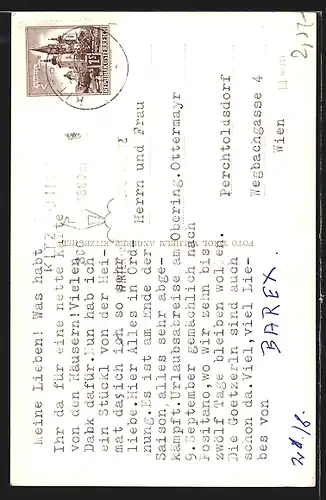 Meine Lieben! Was habt
Ihr da für eine nette Karte
von den Häusern! Vielen
Dabk dafür. Nun hab ich
ein Stückl von der Hei-
mat das ich so sehr
liebe. Hier Alles in Ord-
nung. Es ist am Ende der
Saison alles sehr abge-
kämpft. Urlaubsabreise am
9. September gemächlich nach
Positano, wo wir zehn bis
zwölf Tage bleiben wollen.
Die Goetzerln sind auch
schon da. Viel, viel Lie-
bes von
BAREX.
Herrn und Frau
Obering. Ottermayr
Perchtoldsdorf
Wegbachgasse 4
Wien
REPUBLIK ÖSTERREICH
KITZBÜHEL